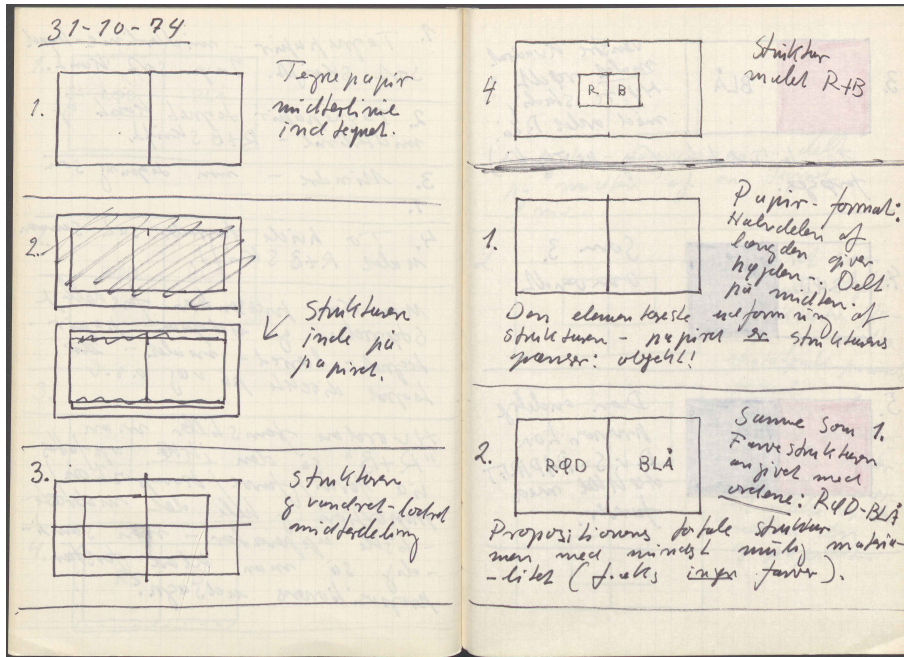 31-10-74
1.
Tegnepapir
midterlinie
indtegnet.
2.
Strukturen
inde på
papiret.
3.
Strukturen
g vandret-lodret
midterdeling
4
R B
Struktur
malet R+B
1.
Papir-format:
Halvdelen af
længden giver
højden - Delt
på midten:
Den elementereste udformning af
strukturen - papiret er strukturens
grænser: objekt!
2.
RØD BLÅ
Samme som 1.
Farvestrukturen
angivet med
ordene: RØD-BLÅ
Propositionens totale struktur
men med mindst mulig materia-
-litet (f.eks ingen farver).